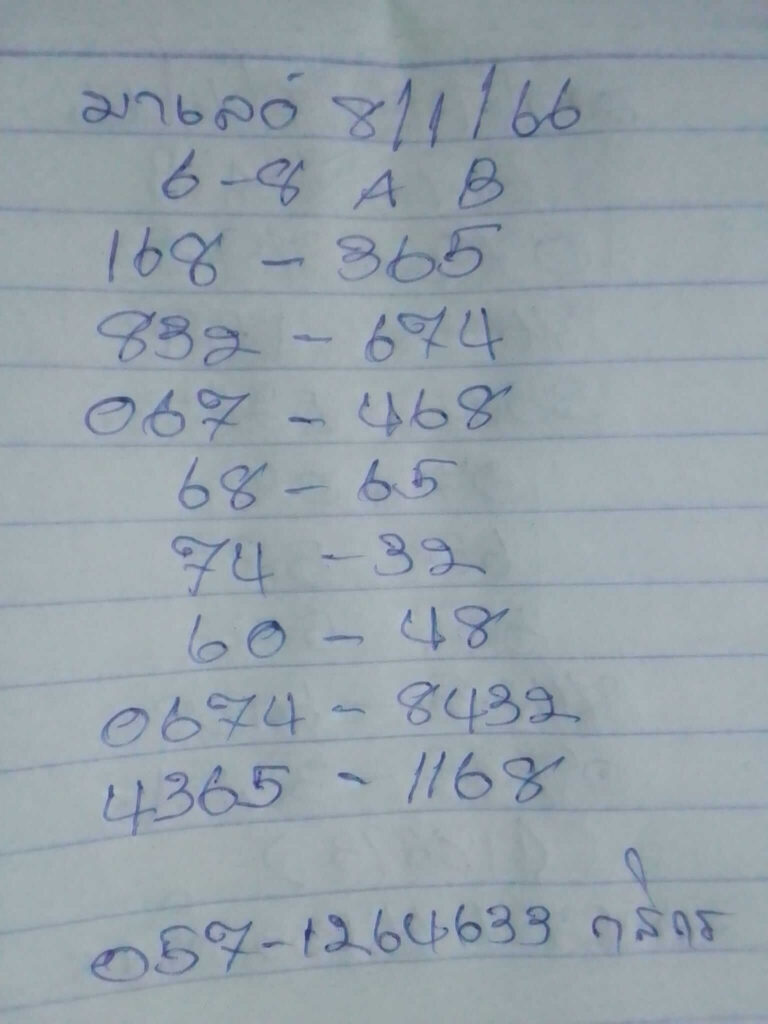 มาเลย์ 8/1/66
6-8 A B
168 - 365
832 - 674
067 - 468
68 - 65
74 - 32
60 - 48
0674 - 8432
4365 - 1168
057-1264633 กสิกร